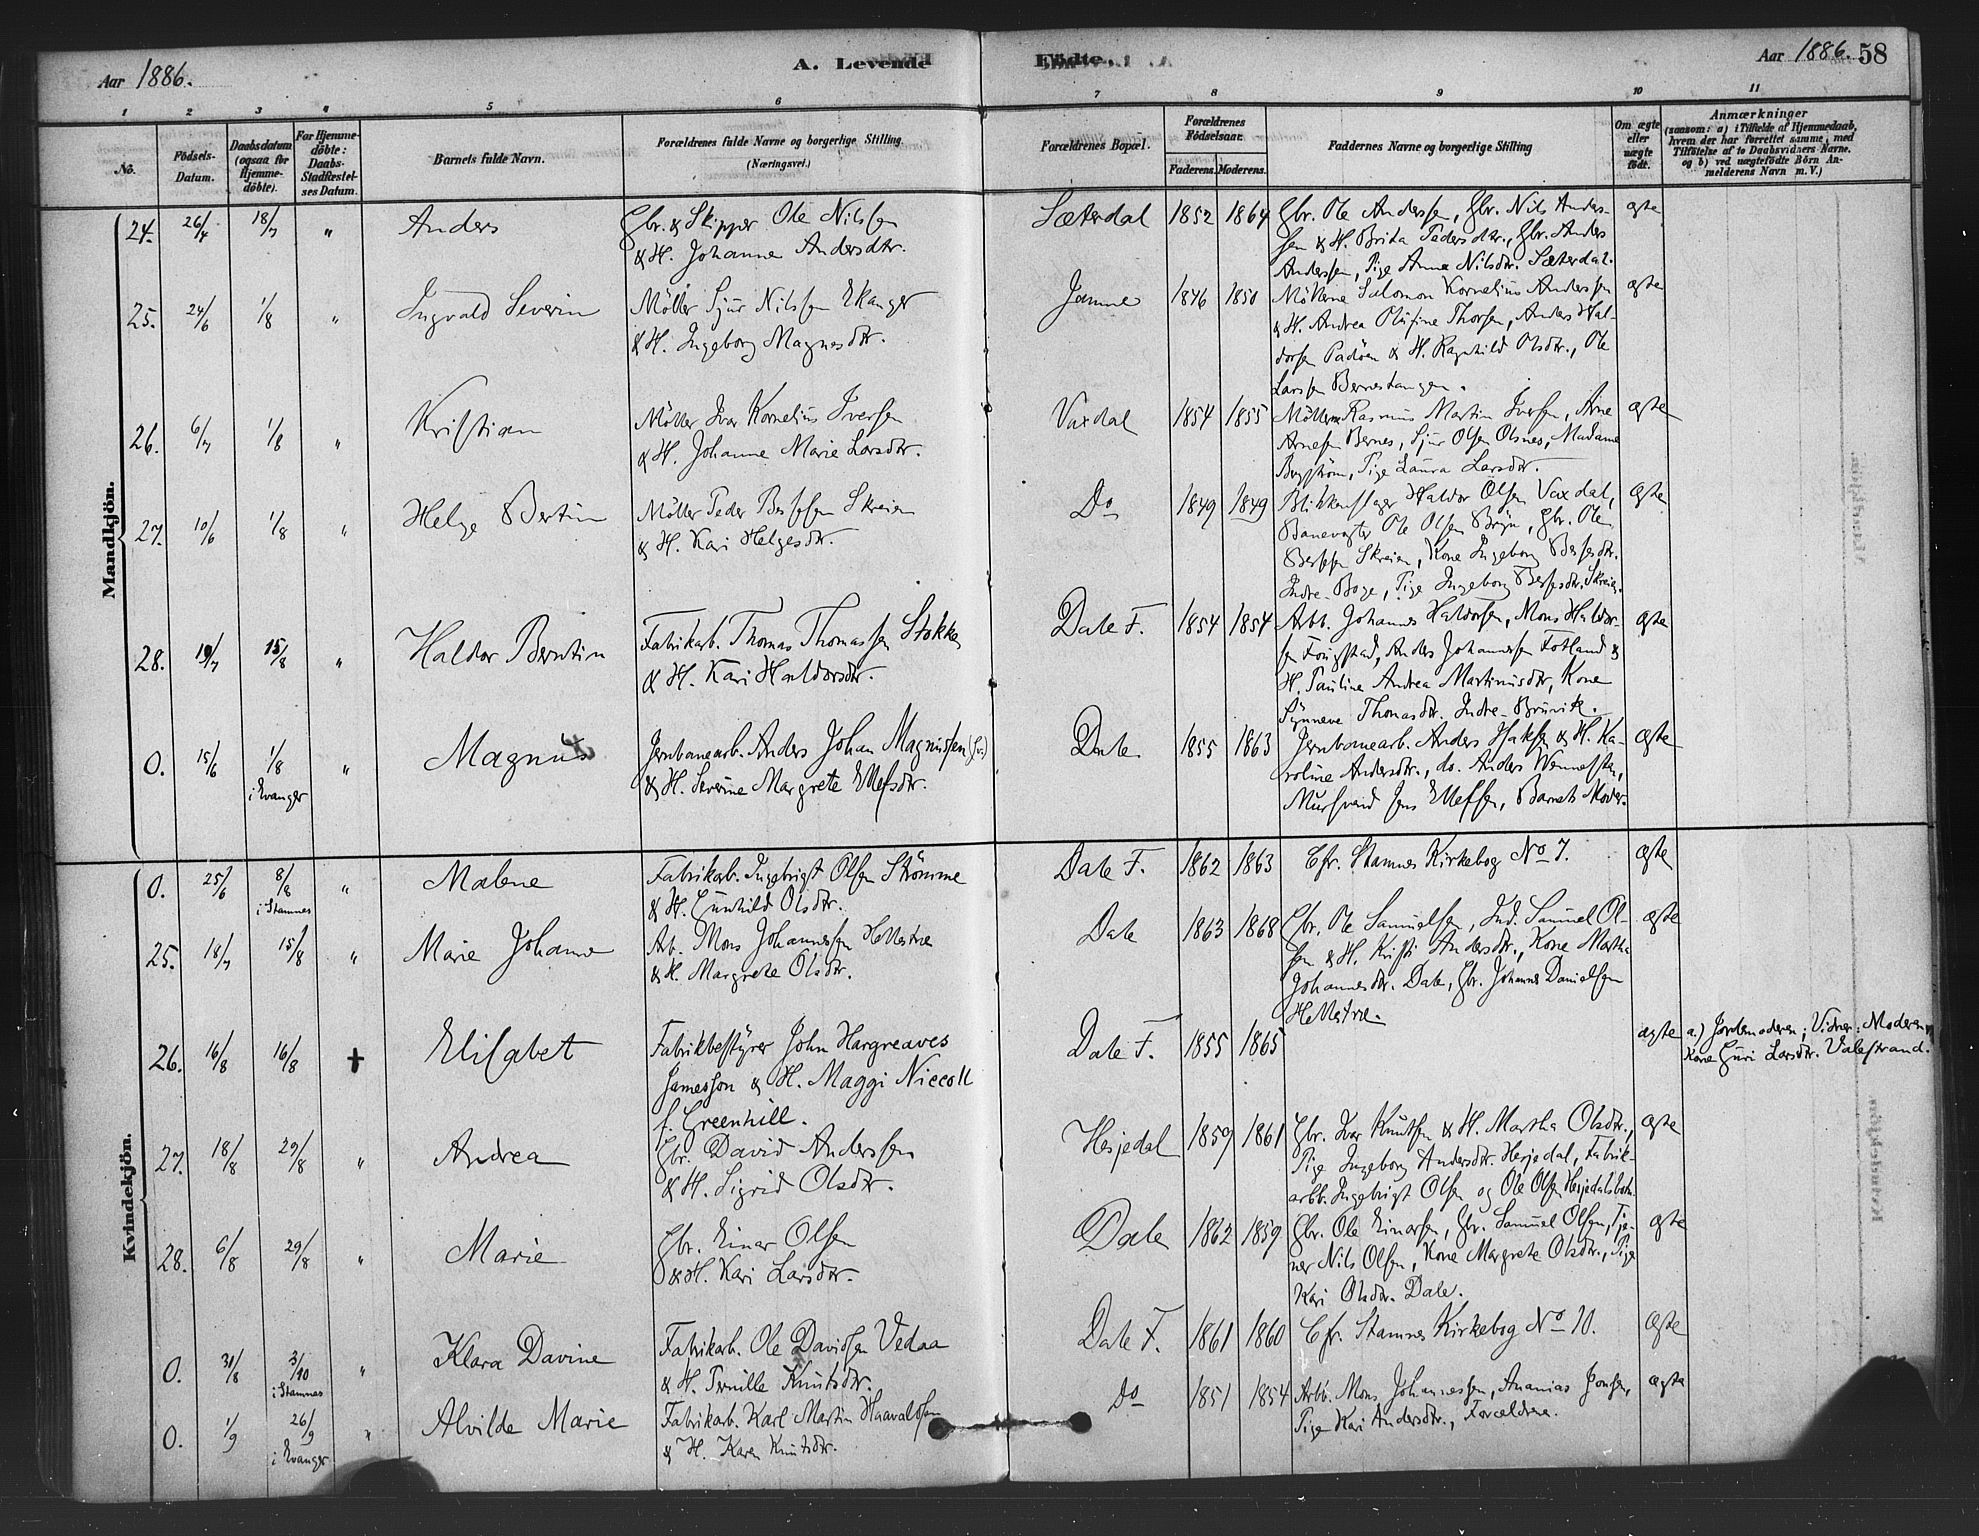 Aar 1886.
A. Levende
Födte.
Aar 1886. 58
1 2 3 4 5 6 7 8 9 10 11
No.
Födsels-Datum.
Daabsdatum (ogsaa for Hjemme-döbte).
For Hjemme-döbte: Daabs-Stadfæstel-ses Datum.
Barnets fulde Navn.
Forældrenes fulde Navne og borgerlige Stilling (Næringsvei.)
Forældrenes Bopæl.
Forældrenes Födselsaar.
Faderens. Moderens.
Faddernes Navne og borgerlige Stilling
Om ægte eller uægte födt.
Anmærkninger
(saasom: a) i Tilfælde af Hjemmedaab, hvem der har forrettet samme, med Tilföielse af to Daabsvidners Navne, og b) ved uægtefödte Börn An-melderens Navn m. V.)
Mandkjön.
24. 26/4 18/7 " Anders
Gbr. & Skipper Ole Nilssen
& H. Johanna Andersdtr.
Sæterdal 1852 1864
Gbr. Ole Anderssen, Gbr. Nils Anders-
sen & H. Brita Pedersdtr., Gbr. Anders
Anderssen, Pige Anna Nilsdtr. Sæterdal.
ægte
25. 24/6 1/8 " Ingvald Severin
Möller Sjur Nilssen Ekanger
& H. Ingeborg Magnesdtr.
Jamne 1846 1850
Möllerne Salomon Kornelius Anderssen
& H. Andrea Olufine Thorsen, Anders Hal-
dorsen Padöen & H. Ragnhild Olsdtr., Ole
Larssen Bernestangen.
ægte
26. 6/7 1/8 " Kristian
Möller Ivar Kornelius Iversen
& H. Johanne Marie Larsdtr.
Vaxdal 1854 1855
Möllerne Rasmus Martin Iversen, Arne
Arnesen Bernes, Sjur Olsen Olsnes, Madame
Bergström, Pige Laura Larsdtr.
ægte
27. 10/6 1/8 " Helge Bertin
Möller Peder Bersesen Skreien
& H. Kari Helgesdtr.
Do 1849 1849
Blikkenslager Haldor Olsen Vaxdal,
Banevogter Ole Olsen Brön, Gbr. Ole
Bersesen Skreien, Kone Ingeborg Bersesdtr.
Indre-Boge, Pige Ingeborg Bersesdtr. Skreien.
ægte
28. 19/7 15/8 " Haldor Berntin
Fabrikarb. Thomas Thomassen Stokke
& H. Kari Haldorsdtr.
Dale F. 1854 1854
Arbb. Johannes Haldorsen, Mons Haldor-
sen Fougstad, Anders Johannesen Fotland &
H. Pauline Andrea Martinusdtr, Kone
Synneve Thomasdtr. Indre-Bruvik.
ægte
0. 15/6 1/8 " Magnus
i Evanger
Jernbanearb. Anders Johan Magnussen
& H. Severine Margrete Ellefsdtr.
Dale 1855 1863
Jernbanearb. Anders Isaksen & H. Ka-
roline Andersdtr., do. Anders
Mursvend Jens Ellefsen, Barnets Moder.
ægte
Kvindekjön.
0. 25/6 8/8 " Malene
i Stamnes
Fabrikarb. Ingebrigt Olsen Strömme
& H. Gunhild Olsdtr.
Dale F. 1862 1863
Cfr. Stamnes Kirkebog No 7.
ægte
25. 18/7 15/8 " Marie Johanne
Arb. Mons Johannessen Hellestræ
& H. Margrete Olsdtr.
Dale 1863 1868
Gbr. Ole Samuelsen, Ind. Samuel Ol-
sen & H. Kristi Andersdtr., Kone Martha
Johannesdtr. Dale, Gbr. Johannes Danielsen
Hellestræ.
ægte
26. 16/8 16/8 + Elisabet
Fabrikbestyrer John Hargreaves
Jamesson & H. Maggi Niccoll
f. Greenhill.
Dale F. 1855 1865
ægte
a.) Jordemoderen; Vidner: Moderen,
Kone Guri Larsdtr. Valestrand.
27. 18/8 29/8 " Andrea
Gbr. David Anderssen
& H. Sigrid Olsdtr.
Hesjedal 1859 1861
Gbr. Ivar Knutsen & H. Martha Olsdtr.,
Pige Ingeborg Andersdtr. Hesjedal, Fabrik-
arbb. Ingebrigt Olsen og Ole Olsen Hesjedalsbotn.
ægte
28. 6/8 29/8 " Marie
Gbr. Einar Olsen
& H. Kari Larsdtr.
Dale 1862 1859
Gbr. Ole Einarsen, Gbr. Samuel Olsen, Tje-
ner Nils Olsen, Kone Margrete Olsdtr., Pige
Kari Olsdtr. Dale.
ægte
0. 31/8 3/10 " Klara Davine
i Stamnes
Fabrikarb. Ole Davidsen Vedaa
& H. Pernille Knutsdtr.
Dale F. 1861 1860
Cfr. Stamnes Kirkebog No 10.
ægte
0. 1/9 26/9 " Alvilde Marie
i Evanger
Fabrikarb. Karl Martin Haavaldsen
& H. Karen Knutsdtr.
Do 1851 1854
Arbb. Mons Johannessen, Ananias Jonsen,
Pige Kari Andersdtr., Forældrene.
ægte